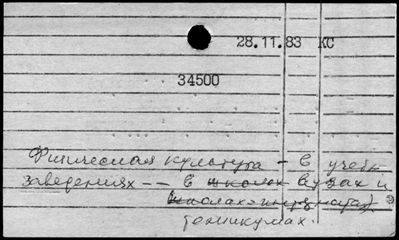 28.11.83 КС
34500
Физическая культура - в учебн
заведениях -- в школах вузах и
школах-интернатах)
техникумах.